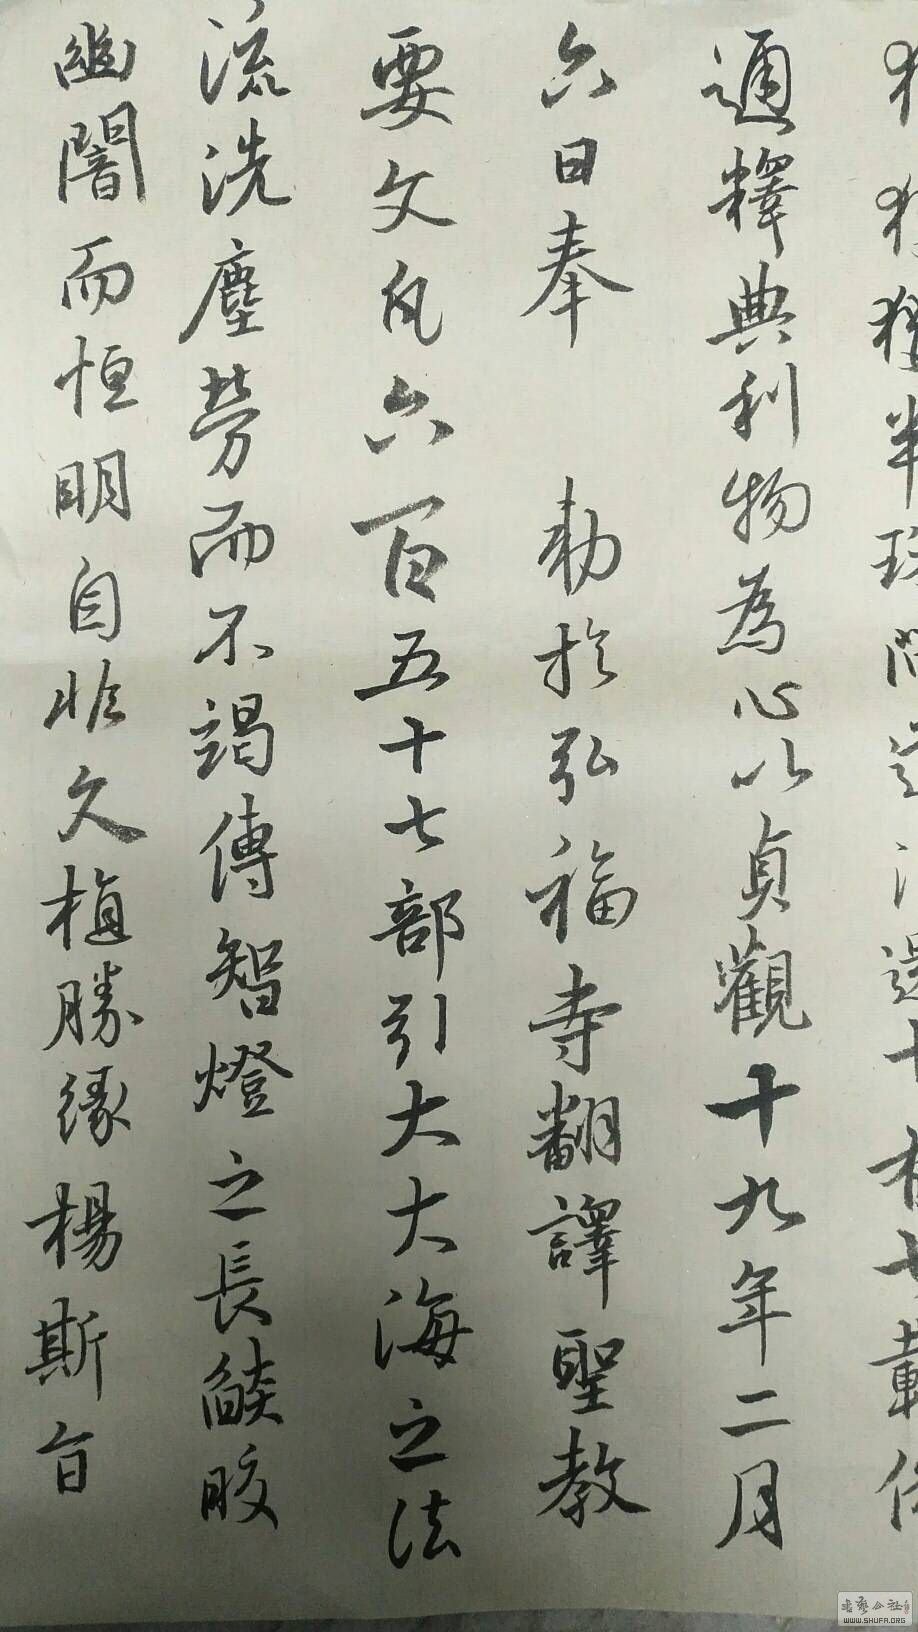 半珠問道法還十有七載備
通釋典利物為心以貞觀十九年二月
六日奉 勅於弘福寺翻譯聖教
要文凡六百五十七部引大大海之法
流洗塵勞而不竭傳智燈之長燄皎
幽闇而恒明自非久植勝緣楊斯旨
WWW.SHUFA.ORG